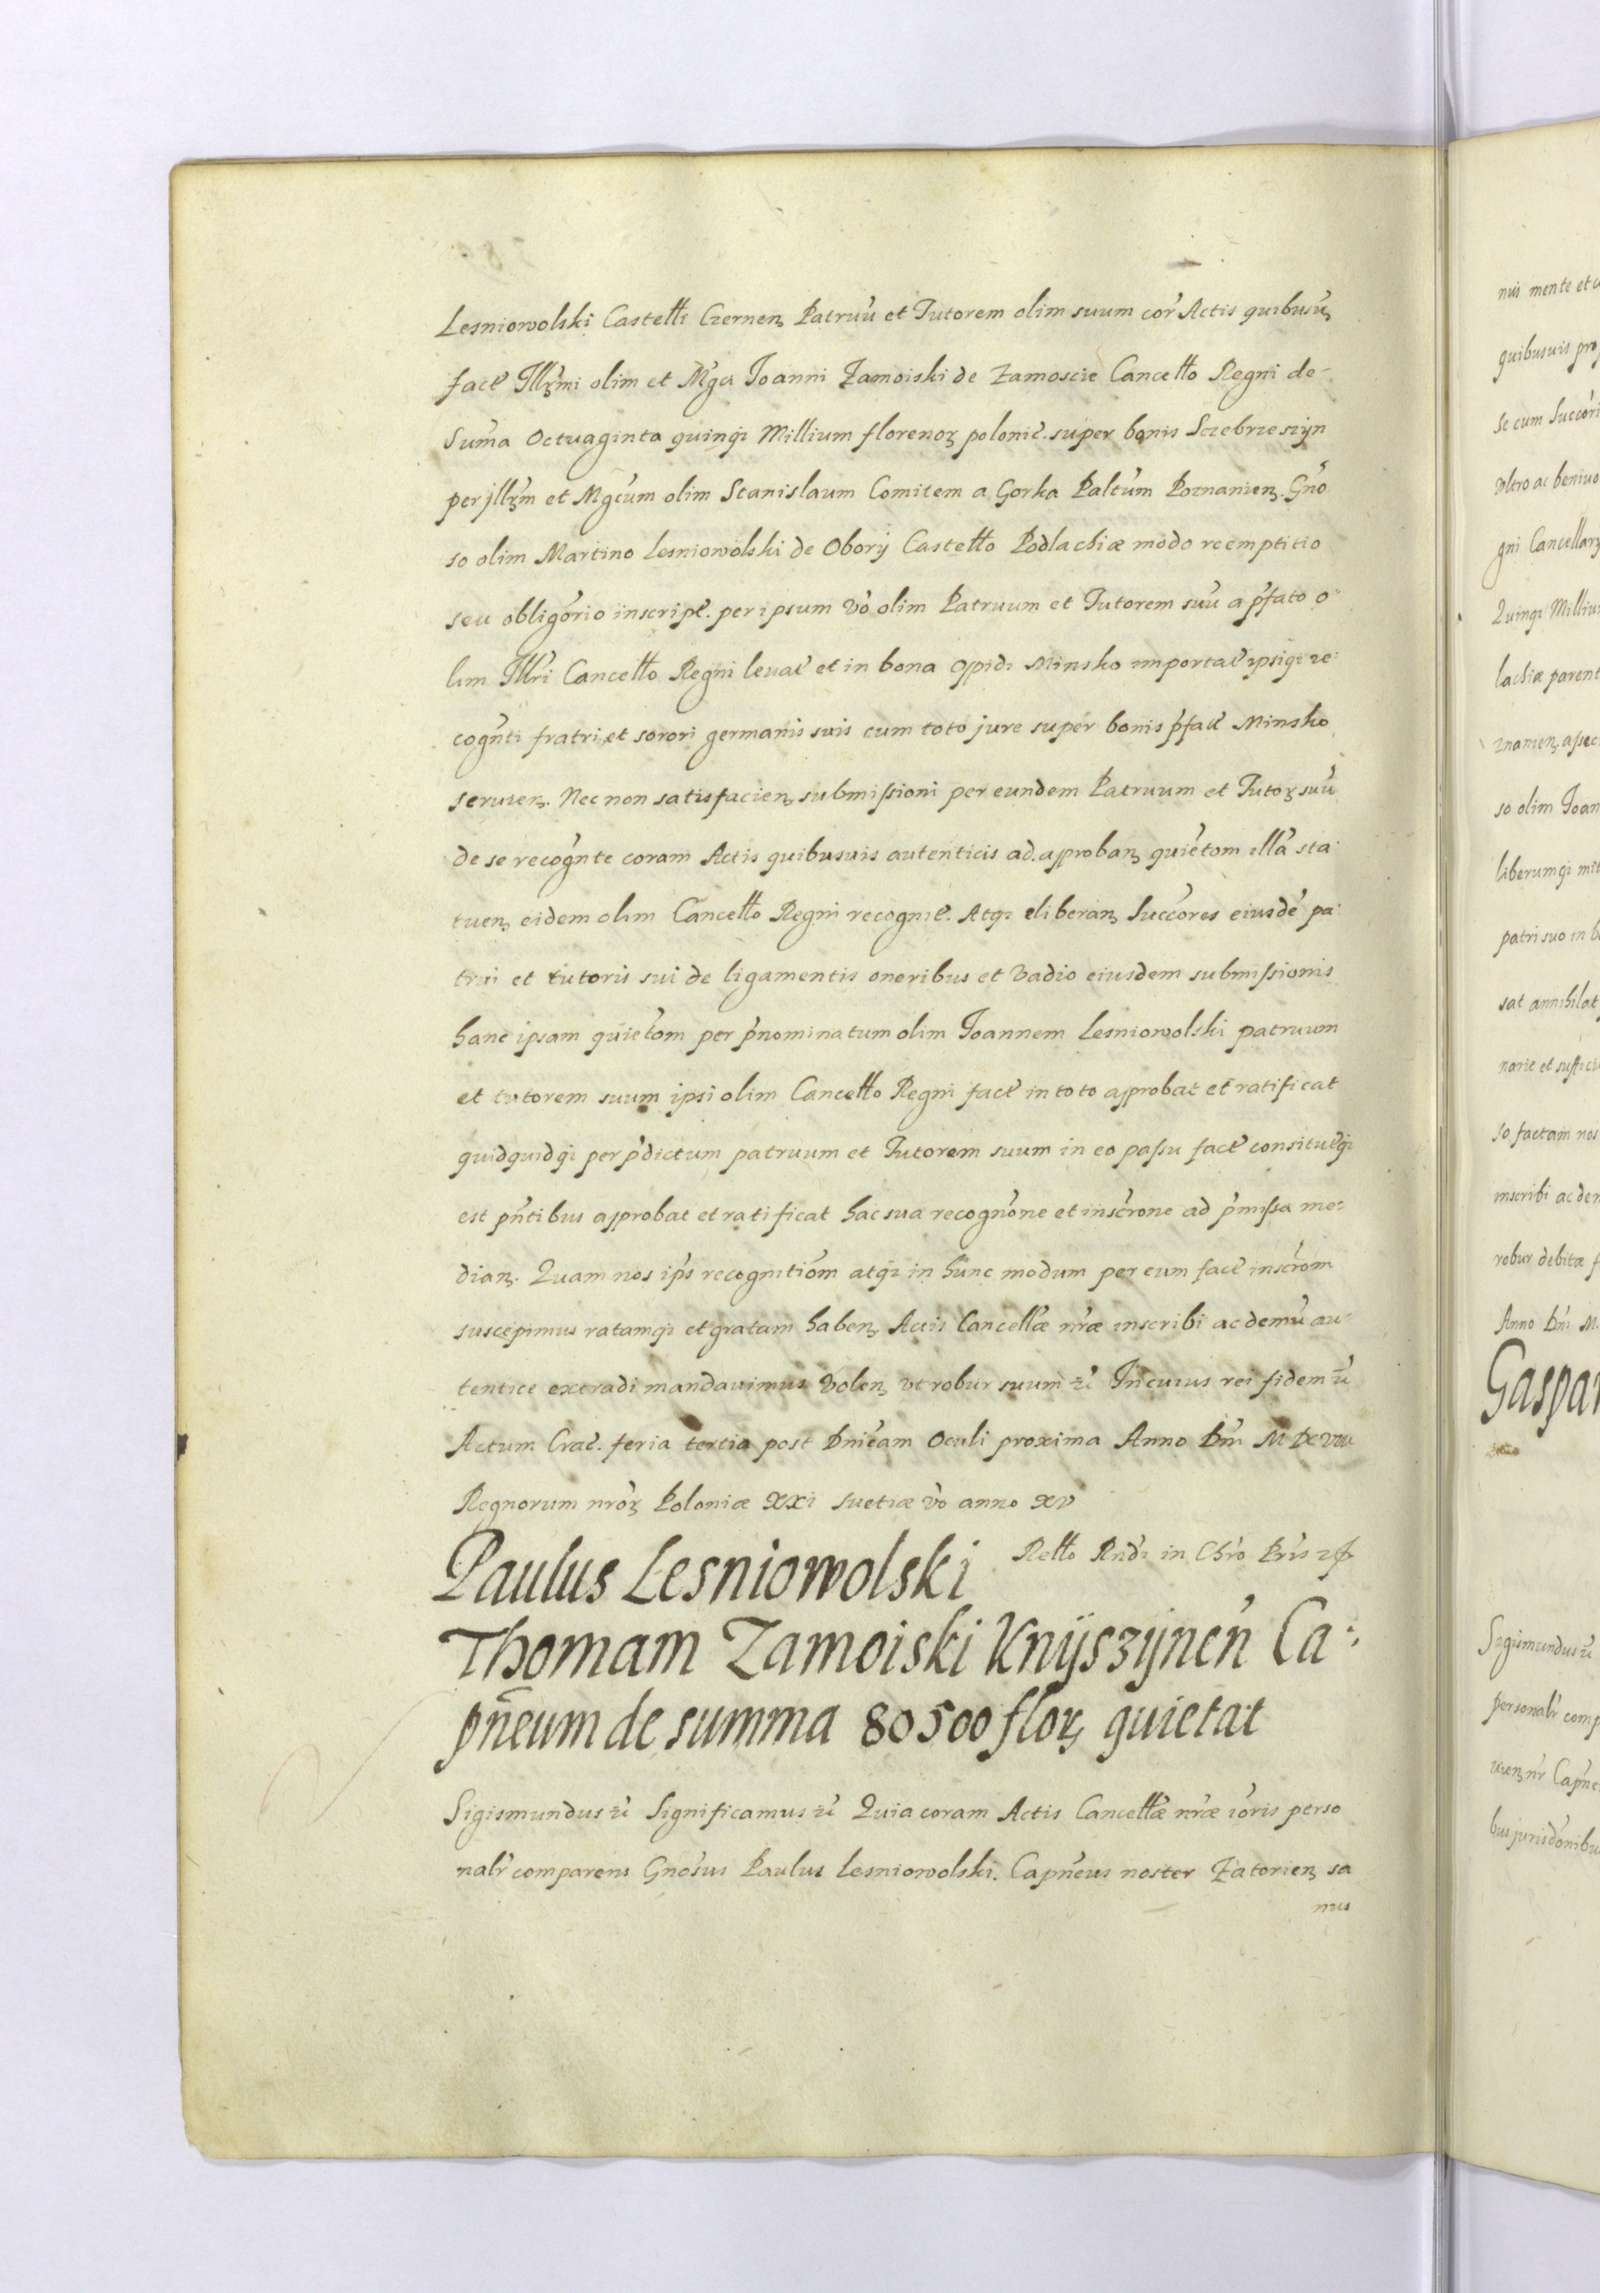 Lesniowolski Castelł Czernen Patruũ et Tutorem olim suum cor Actis quibusuȝ
fact Illȝmi olim et Mgci Ioanni Zamoiski de Zamoscie Cancełło Regni de
Sum̃a Octuaginta quinqȝ Millium florenoȝ polonic. super bonis Sczebrzeszÿn
per jllȝm et Mgcum olim Stanislaum Comitem a Gorka Paltũm Poznanienȝ. Gñó
so olim Martino Lesniowolski de Oborÿ Castełło Podlachiæ modo reemptitio
seu obligorio inscript. per ipsum vo olim Patruum et Tutorem suũ a p̃fato o-
lim Illri Cancełło Regni leuat et in bona oppidi Minsko importat ipsiqȝ re-
cogñti fratri et sorori germanis suis cum toto jure super bonis p̃fat Minsko
seruienȝ. Nec non satisfacienȝ submiſsioni per eundem Patruum et Tutoȝ suũ
de se recogñte coram Actis quibusuis autenticis ad approbanȝ quietom̃ illã sta-
tuenȝ eidem olim Cancełło Regni recognit. Atqȝ eliberanȝ Succores eiusdẽ pa-
trui et tutoris sui de ligamentis oneribus et vadio eiusdem submiſsionis
hanc ipsam quietom̃ per p̃nominatum olim Ioannem Lesniowolski patruum
et tutorem suum ipsi olim Cancełło Regni fact in toto approbat et ratificat
quidquidqȝ per p̃dictum patruum et Tutorem suum in eo paſsu fact consitutqȝ
est pñtibus approbat et ratificat hac sua recognõne et inscr̃one ad p̃miſsa me-
dianȝ. Quam nos ip̃s recognitiom̃ atqȝ in hunc modum per eum fact inscr̃om
suscepimus ratamqȝ et gratam habenȝ Actis Cancellæ nr̃æ inscribi ac demũ au-
tentice extradi mandauimus volenȝ vt robur suum ꝛc̃ In cuius rei fidem ꝛc̃
Actum Crac. feria tertia post Dñicam Oculi proxima Anno Dñi M DC VIII
Regnorum nr̃oȝ Poloniæ XXi Suetiæ vo anno XV
Rełło Rndi in Chr̃o Pr̃is ꝛp
Paulus Lesniowolski
Thomam Zamoiski Knÿszÿneñ Ca-
pñeum de summa 80500 floȝ quietat
Sigismundus ꝛc̃ Significamus ꝛc̃ Quia coram Actis Cancellæ nr̃æ ioris perso
nalr̃ comparens Gnosus Paulus Lesniowolski. Capñeus noster Zatorienȝ sa
nus
nus mente et c
quibusuis pro
se cum Succori
vltro ac beniuo
gni Cancellarȝ
Quinqȝ Milliu
lachiæ parent
znanienȝ aſsec
so olim Ioan
liberumqȝ mit
patri suo in b
sat annihilat
narie et suffici
so factam nos
inscribi ac de
robur debitæ f
Anno Dñi M.
Gaspar
Sigismundus ꝛc̃
personalr̃ comp
uienȝ nr̃ Capñe
bus jurisdonibu